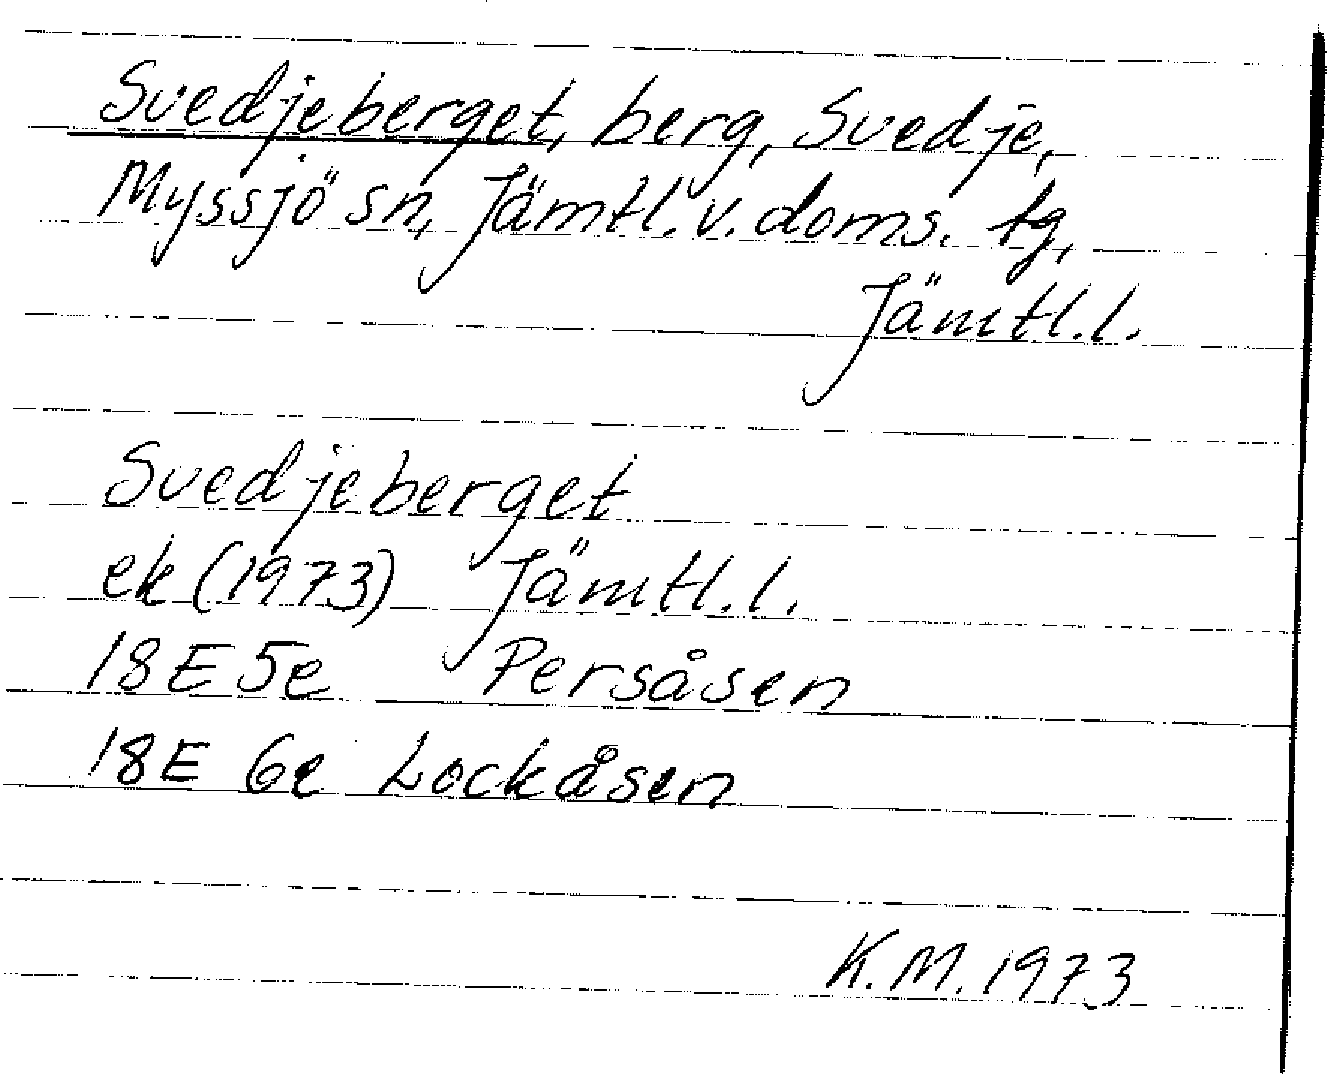 Svedjeberget, berg, Svedje,
Myssjö sn, Jämtl. v. doms. tg,
Jämtl.l.
Svedjeberget
ek (1973) Jämtl.l.
18E 5e Persåsen
18E 6e Lockåsen
K.M. 1973